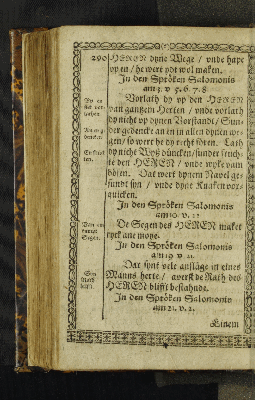 290 HEREN dyne Wege / vnde hape
vp en / he wert ydt wol maken.
In den Spröken Salomonis
am 3. v 5. 6. 7. 8
Vorlath dy vp den HEREN
van gantzem Herten / vnde vorlath
dy nicht vp dynen Vorstand / Sun-
der gedencke an en in allen dynen we-
gen / so wert he dy recht fören. Lath
dy nicht Wyß düncken / sunder früch-
te den HEREN / vnde wyke vam
bösen. Dat wert dynem Navel ge-
sundt syn / vnde dyne Knaken vor-
quicken.
In den Spröken Salomonis
am 10. v. 22
De Segen des HEREN maket
ryck ane moye.
In den Spröken Salomonis
am 19 v 21.
Dat synt vele anslage in eines
Manns herte / averst de Rath des
HEREN blifft bestahnde.
In den Spröken Salomonis
am 21. v. 2.
Einem